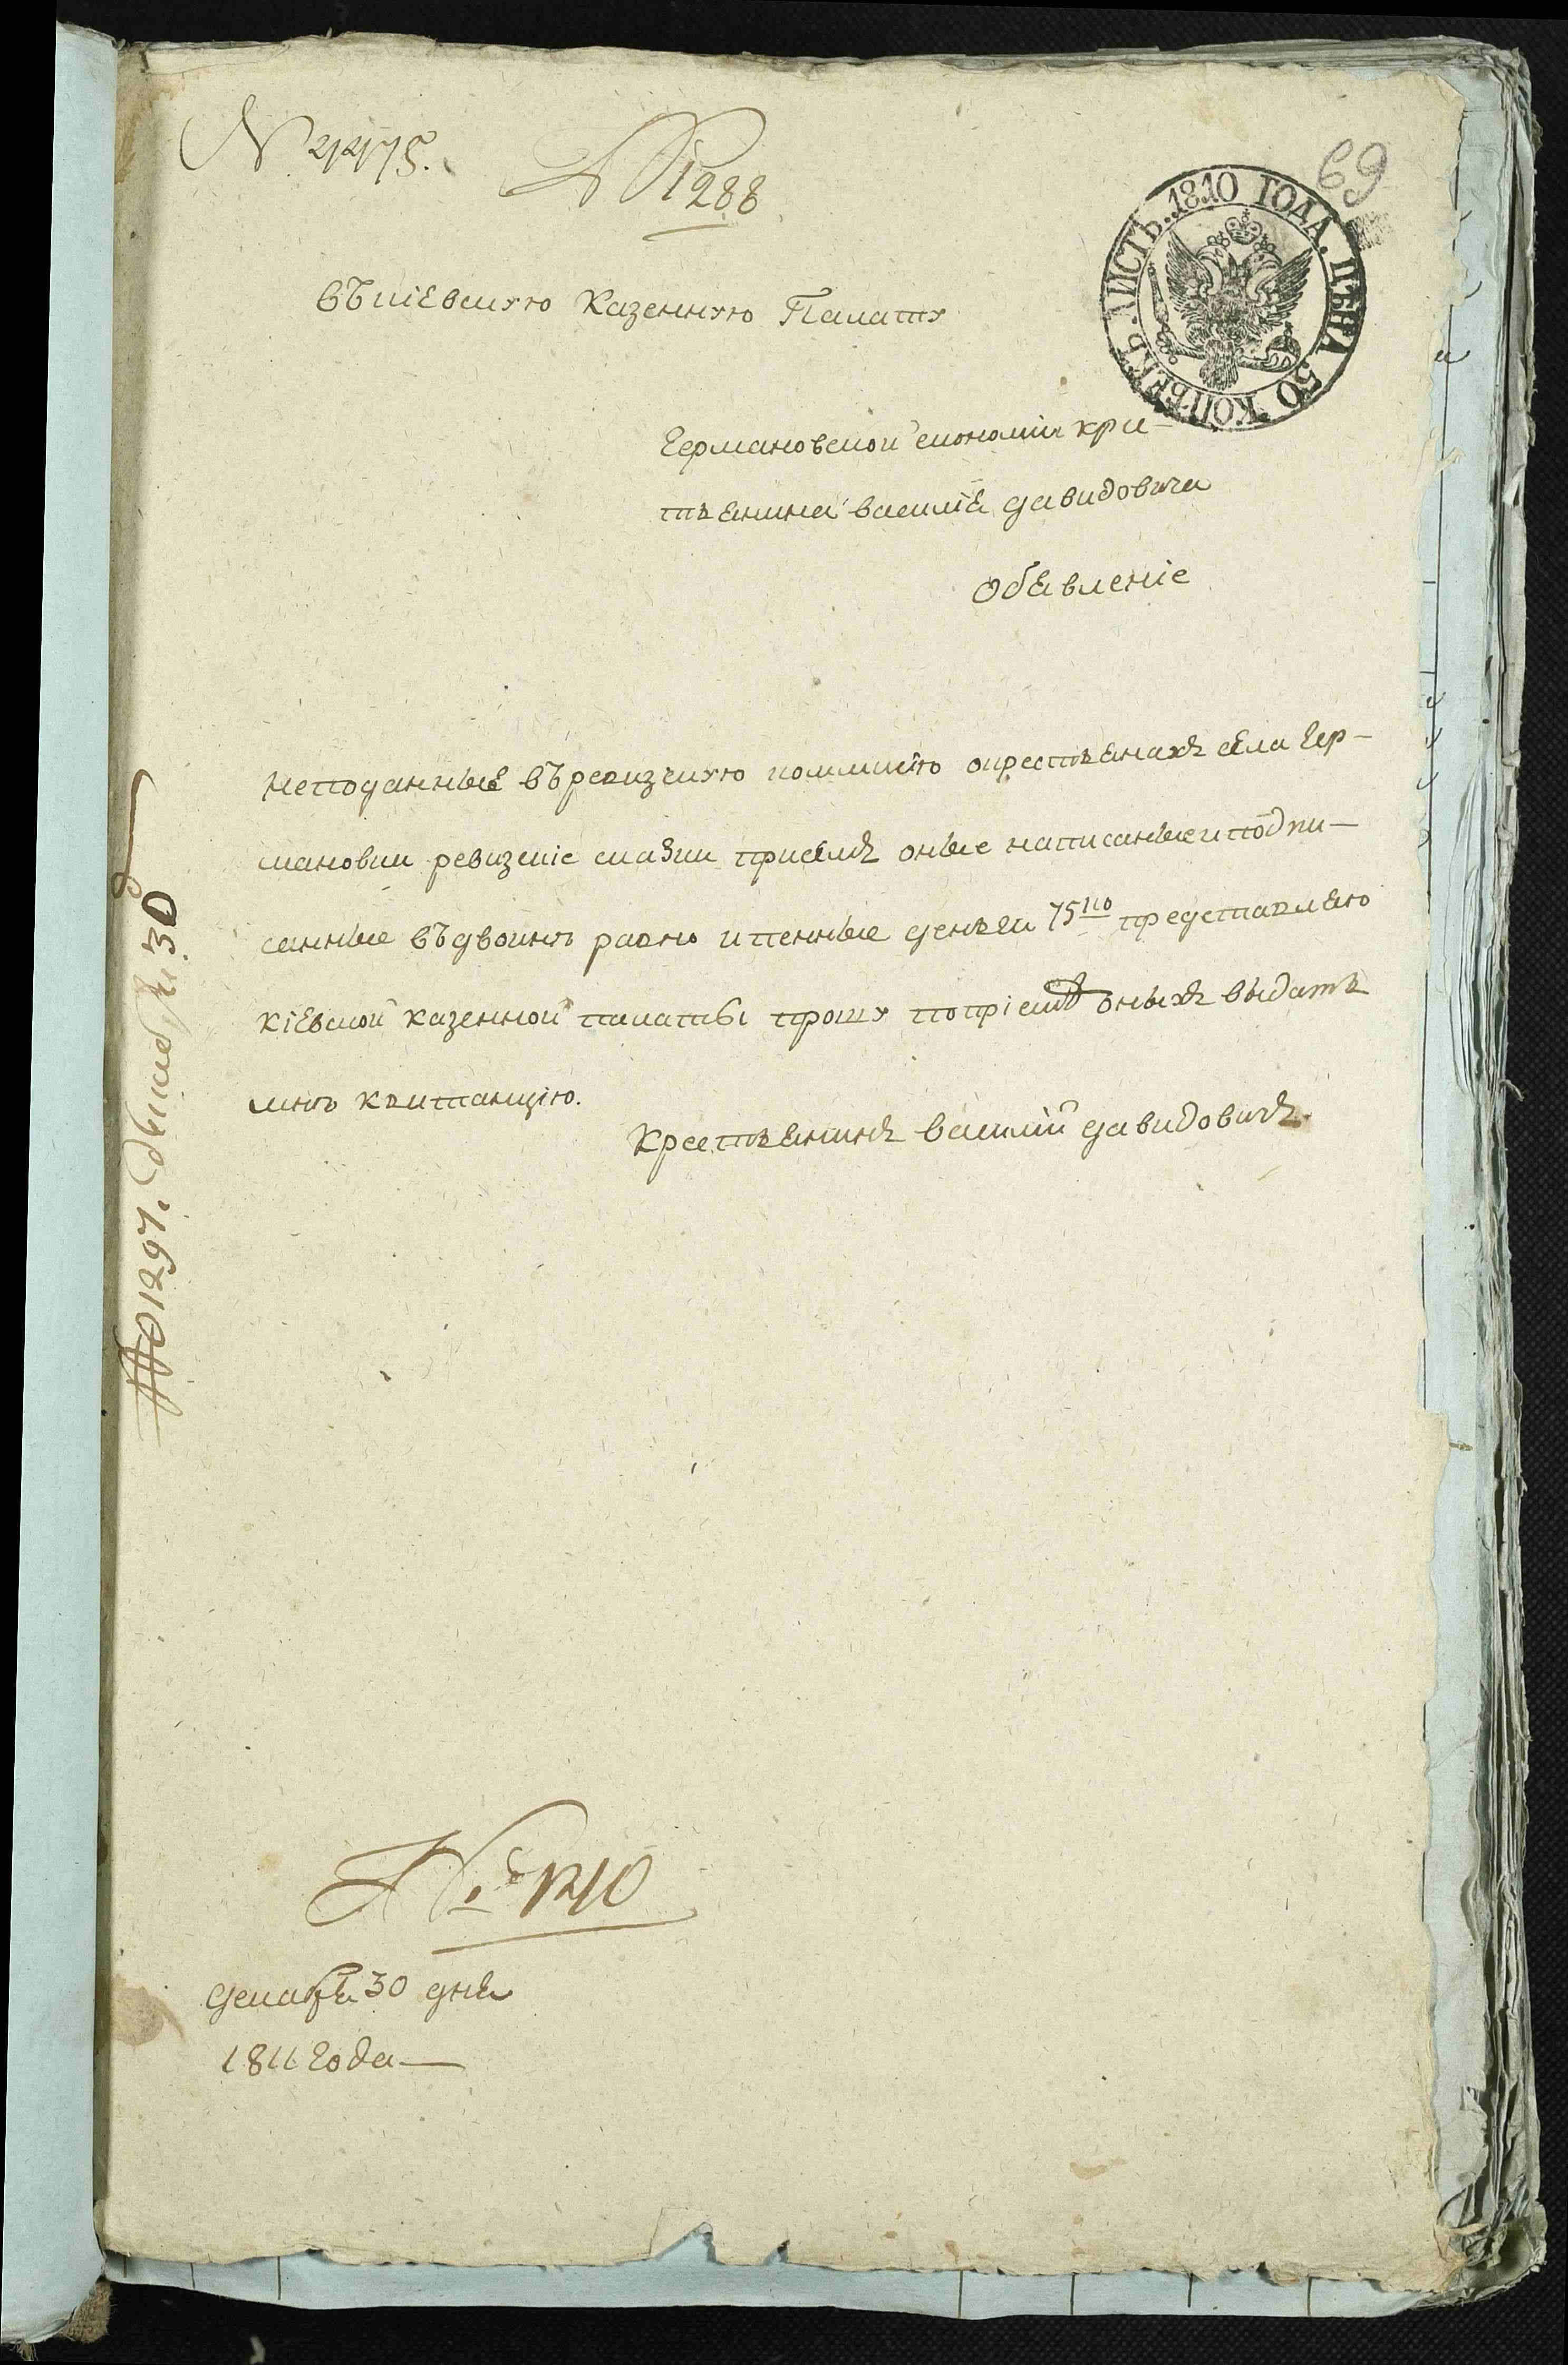 № 24175.
№ 1288
69
ЛИСТЪ. 1810 ГОДА. ЦѢНА 50 КОПѢЕКЪ.
въ киевскую Казенную Палату
Германовской економіи кре-
стьянина василія давидовича
Обявленіе
неподанные въ ревизскую коммисію о крестьянахъ села Гер-
мановки ревизскіе сказки присемъ оные написаные и подпи-
санные въ двойнѣ равно и пенные деньги 75 ко представляю
кіевской казенной палаты прошу по пріемѣ оныхъ выдать
мнѣ квитанцію.
Крестьянинъ василій давидовичъ
№ 1297. 30
№ 1210
декабря 30 дня
1811 года